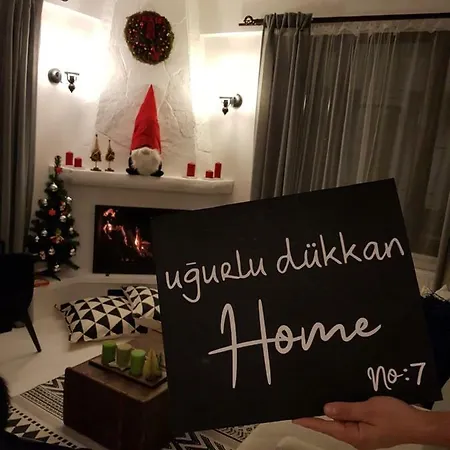 uğurlu dükkan
Home
No:7